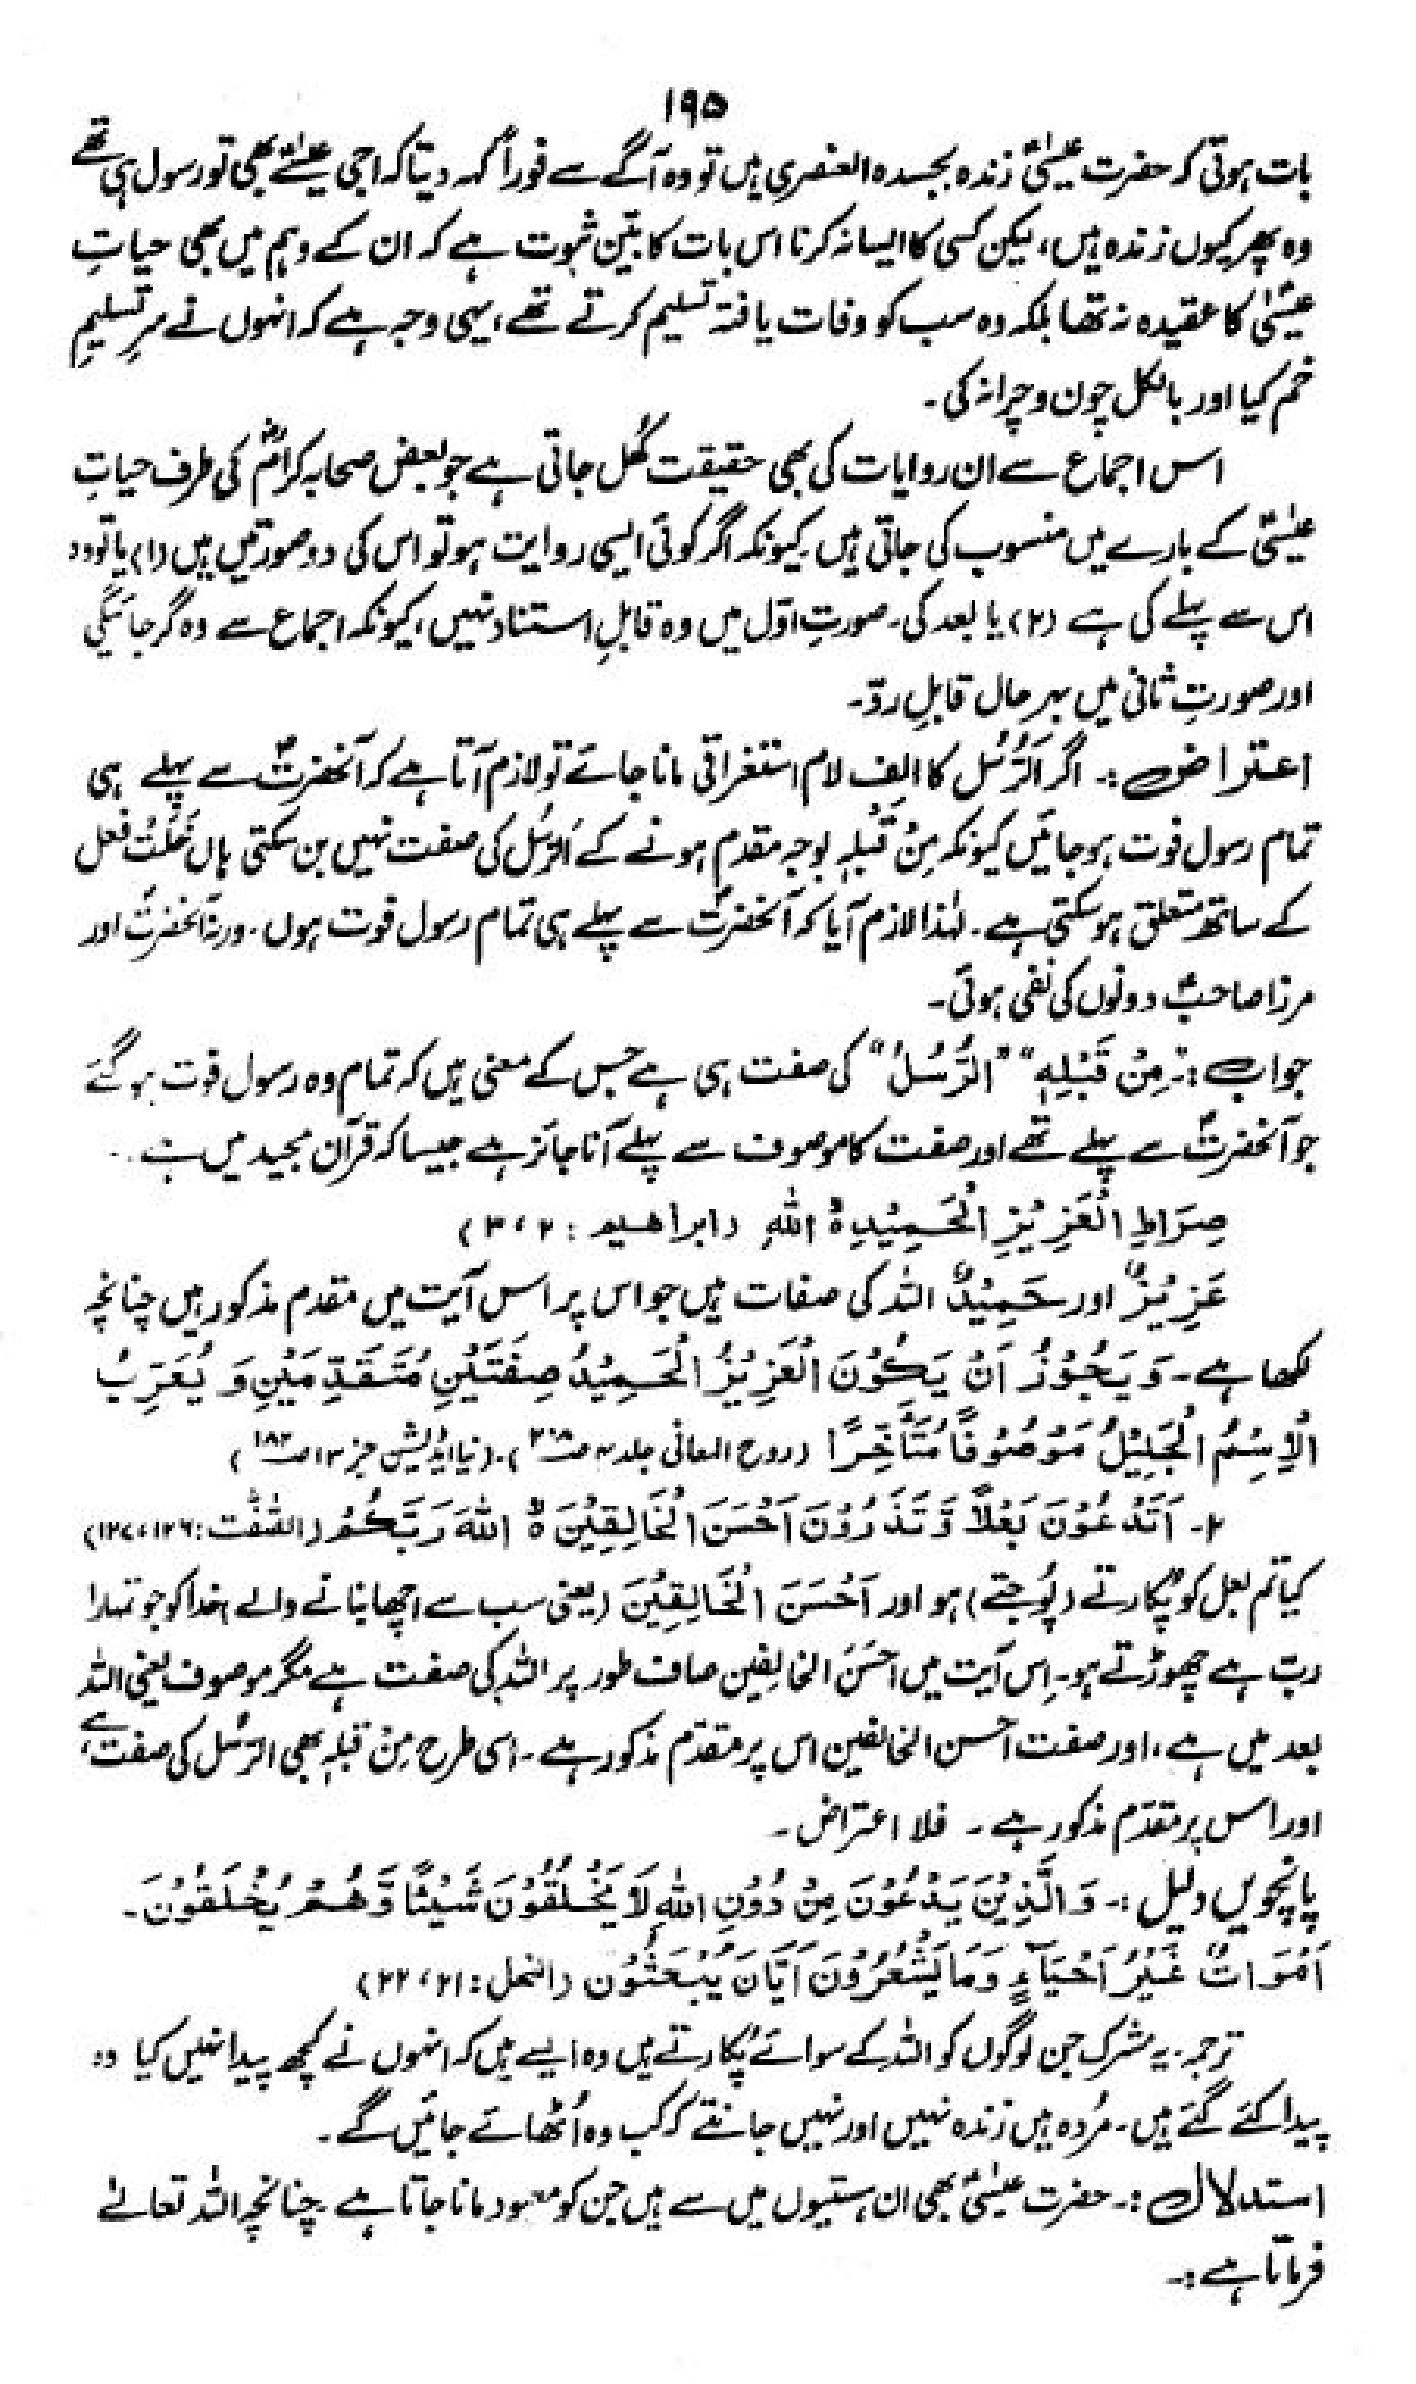 ۱۹۵
بات ہوتی کہ حضرت عیسیٰؑ زندہ بجسدہ العنصری ہیں تو وہ آگے سے فوراً کہہ دیتا کہ اجی عیسےٰؑ بھی تو رسول ہی تھے
وہ پھر کیوں زندہ ہیں، لیکن کسی کا ایسا نہ کرنا اس بات کا بیّن ثبوت ہے کہ ان کے وہم میں بھی حیاتِ
عیسیٰؑ کا عقیدہ نہ تھا بلکہ وہ سب کو وفات یافتہ تسلیم کرتے تھے، یہی وجہ ہے کہ انہوں نے سرِ تسلیم
خم کیا اور بالکل چون و چرا نہ کی۔
اس اجماع سے ان روایات کی بھی حقیقت کُھل جاتی ہے جو بعض صحابہ کرامؓ کی طرف حیاتِ
عیسیٰؑ کے بارے میں منسوب کی جاتی ہیں۔ کیونکہ اگر کوئی ایسی روایت ہو تو اس کی دو صورتیں ہیں (۱) یا تو وہ
اس سے پہلے کی ہے (۲) یا بعد کی۔ صورتِ اوّل میں وہ قابلِ استناد نہیں، کیونکہ اجماع سے وہ گر جائیگی
اور صورتِ ثانی میں بہر حال قابلِ ردّ۔
اعتراض:۔ اگر اَلرُّسُل کا الف لام استغراقی مانا جائے تو لازم آتا ہے کہ آنحضرتؐ سے پہلے ہی
تمام رسول فوت ہو جائیں کیونکہ مِنْ قَبْلِہٖ بوجہ مقدم ہونے کے اَلرُّسُل کی صفت نہیں بن سکتی ہاں خَلَتْ فعل
کے ساتھ متعلق ہو سکتی ہے۔ لہٰذا لازم آیا کہ آنحضرتؐ سے پہلے ہی تمام رسول فوت ہوں۔ ورنہ آنحضرتؐ اور
مرزا صاحبؑ دونوں کی نفی ہوتی۔
جواب:۔ "مِنْ قَبْلِہٖ" "الرُّسُلُ" کی صفت ہی ہے جس کے معنی ہیں کہ تمام وہ رسول فوت ہو گئے
جو آنحضرتؐ سے پہلے تھے اور صفت کا موصوف سے پہلے آنا جائز ہے جیسا کہ قرآن مجید میں ہے۔
صِرَاطِ الْعَزِیْزِ الْحَمِیْدِہ اللّٰہِ (ابراھیم : ۲، ۳)
عَزِیْزٌ اور حَمِیْدٌ اللہ کی صفات ہیں جو اس پر اس آیت میں مقدم مذکور ہیں چنانچہ
لکھا ہے۔ وَیَجُوْزُ اَنْ یَّکُوْنَ الْعَزِیْزُ الْحَمِیْدُ صِفَتَیْنِ مُتَقَدِّمَیْنِ وَ یُعَرِّبُ
الْاِسْمُ الْجَلِیْلُ مَوْصُوْفًا مُتَأَخِّرًا (روح المعانی جلد ۴ صـ۲۰۸)۔ (نیا ایڈیشن جز ۱۳ صـ۱۸۲)
۲۔ اَتَدْعُوْنَ بَعْلًا وَّتَذَرُوْنَ اَحْسَنَ الْخَالِقِیْنَ ہ اللّٰہَ رَبَّکُمْ (الصّٰفّٰت: ۱۲۶، ۱۲۷)
کیا تم بعل کو پُکارتے (پُوجتے) ہو اور اَحْسَنَ الْخَالِقِیْنَ (یعنی سب سے اچھا بنانے والے) خدا کو جو تمہارا
ربّ ہے چھوڑتے ہو۔ اِس آیت میں احسن الخالقین صاف طور پر اللہ کی صفت ہے مگر موصوف یعنی اللہ
بعد میں ہے، اور صفت احسن الخالقین اس پر مقدّم مذکور ہے۔ اسی طرح مِنْ قبلہٖ بھی الرّسُل کی صفت ہے،
اور اس پر مقدّم مذکور ہے۔ فلا اعتراض۔
پانچویں دلیل:۔ وَالَّذِیْنَ یَدْعُوْنَ مِنْ دُوْنِ اللّٰہِ لَا یَخْلُقُوْنَ شَیْئًا وَّھُمْ یُخْلَقُوْنَ۔
اَمْوَاتٌ غَیْرُ اَحْیَآءٍ وَمَا یَشْعُرُوْنَ اَیَّانَ یُبْعَثُوْن (النحل: ۲۱، ۲۲)
ترجمہ۔ یہ مشرک جن لوگوں کو اللہ کے سوائے پُکارتے ہیں وہ ایسے ہیں کہ انہوں نے کچھ پیدا نہیں کیا وہ
پیدا کئے گئے ہیں۔ مُردہ ہیں زندہ نہیں اور نہیں جانتے کہ کب وہ اُٹھائے جائیں گے۔
استدلال:۔ حضرت عیسیٰؑ بھی ان ہستیوں میں سے ہیں جن کو معبود مانا جاتا ہے۔ چنانچہ اللہ تعالےٰ
فرماتا ہے:۔